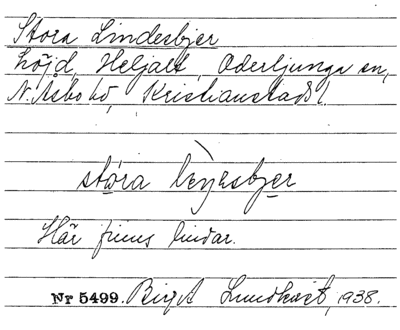 Stora Lindesbjer
höjd, Heljalt, Oderljunga sn,
N. Åsbo hd, Kristianstads l.
stóra
Här finns lindar.
Nr 5499. Birgit Lundkvist, 1938.